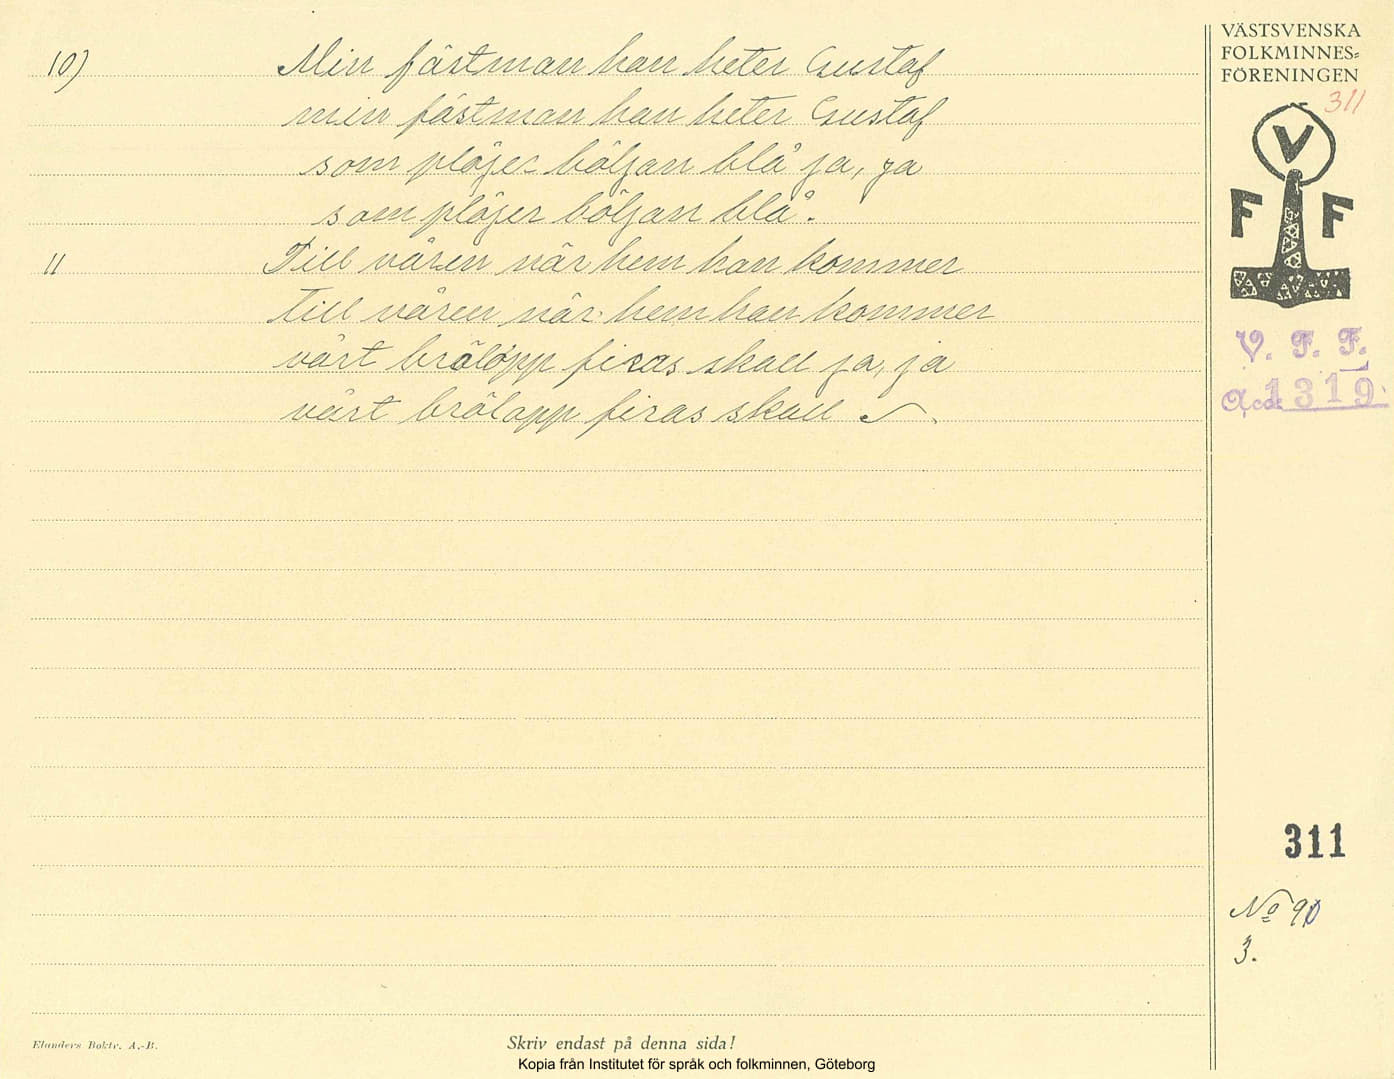 10) Min fästman han heter Gustaf
min fästman han heter Gustaf
som plöjer böljan blå ja, ja
som plöjer böljan blå.
11 Till våren när hem han kommer
Till våren när hem han kommer
vårt brölöpp firas skall ja, ja
vårt brölopp firas skall
VÄSTSVENSKA
FOLKMINNES=
FÖRENINGEN
311
V
F F
V. F. F.
Acc: 1319
311
No 90
3.
Elanders Boktr. A.-B.
Skriv endast på denna sida!
Kopia från Institutet för språk och folkminnen, Göteborg